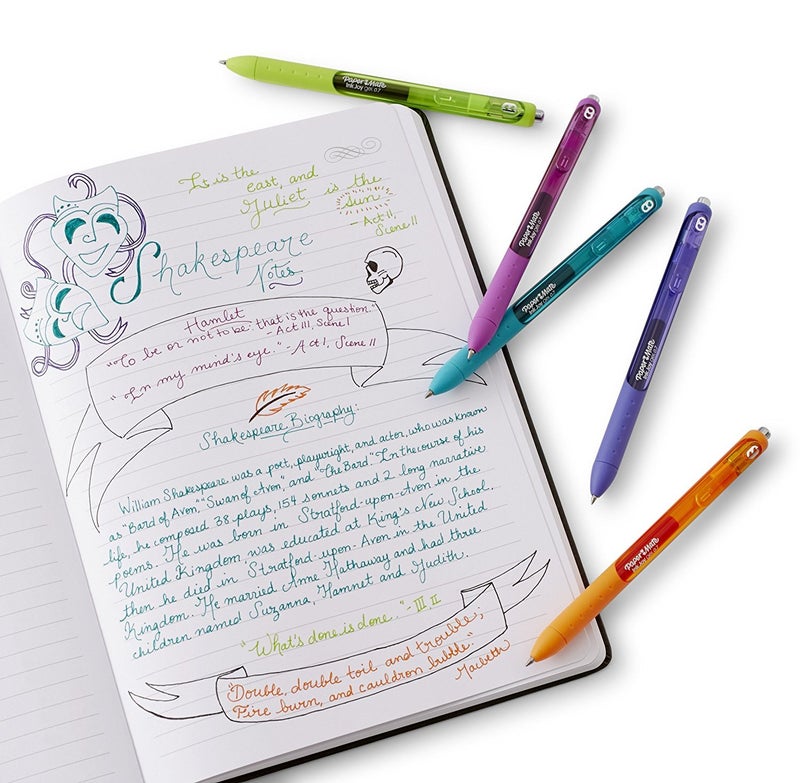 It is the
east, and
Juliet is the
sun.
- Act II,
Scene II
Shakespeare
Notes
Hamlet
"To be or not to be: that is the question."
- Act III, Scene I
"In my mind's eye." - Act I, Scene II
Shakespeare Biography:
William Shakespeare was a poet, playwright, and actor, who was known
as "Bard of Avon," "Swan of Avon", and "The Bard." In the course of his
life, he composed 38 plays, 154 sonnets and 2 long narrative
poems. He was born in Stratford-upon-Avon in the
United Kingdom, was educated at King's New School,
then he died in Stratford-upon-Avon in the United
Kingdom. He married Anne Hathaway and had three
children named Suzanna, Hamnet and Judith.
"What's done is done." - III II
"Double, double toil and trouble;
Fire burn, and cauldron bubble."
Macbeth
Paper Mate
InkJoy gel 0.7
Paper Mate
InkJoy gel 0.7
Paper Mate
InkJoy gel 0.7
Paper Mate
InkJoy gel 0.7
Paper Mate
InkJoy gel 0.7